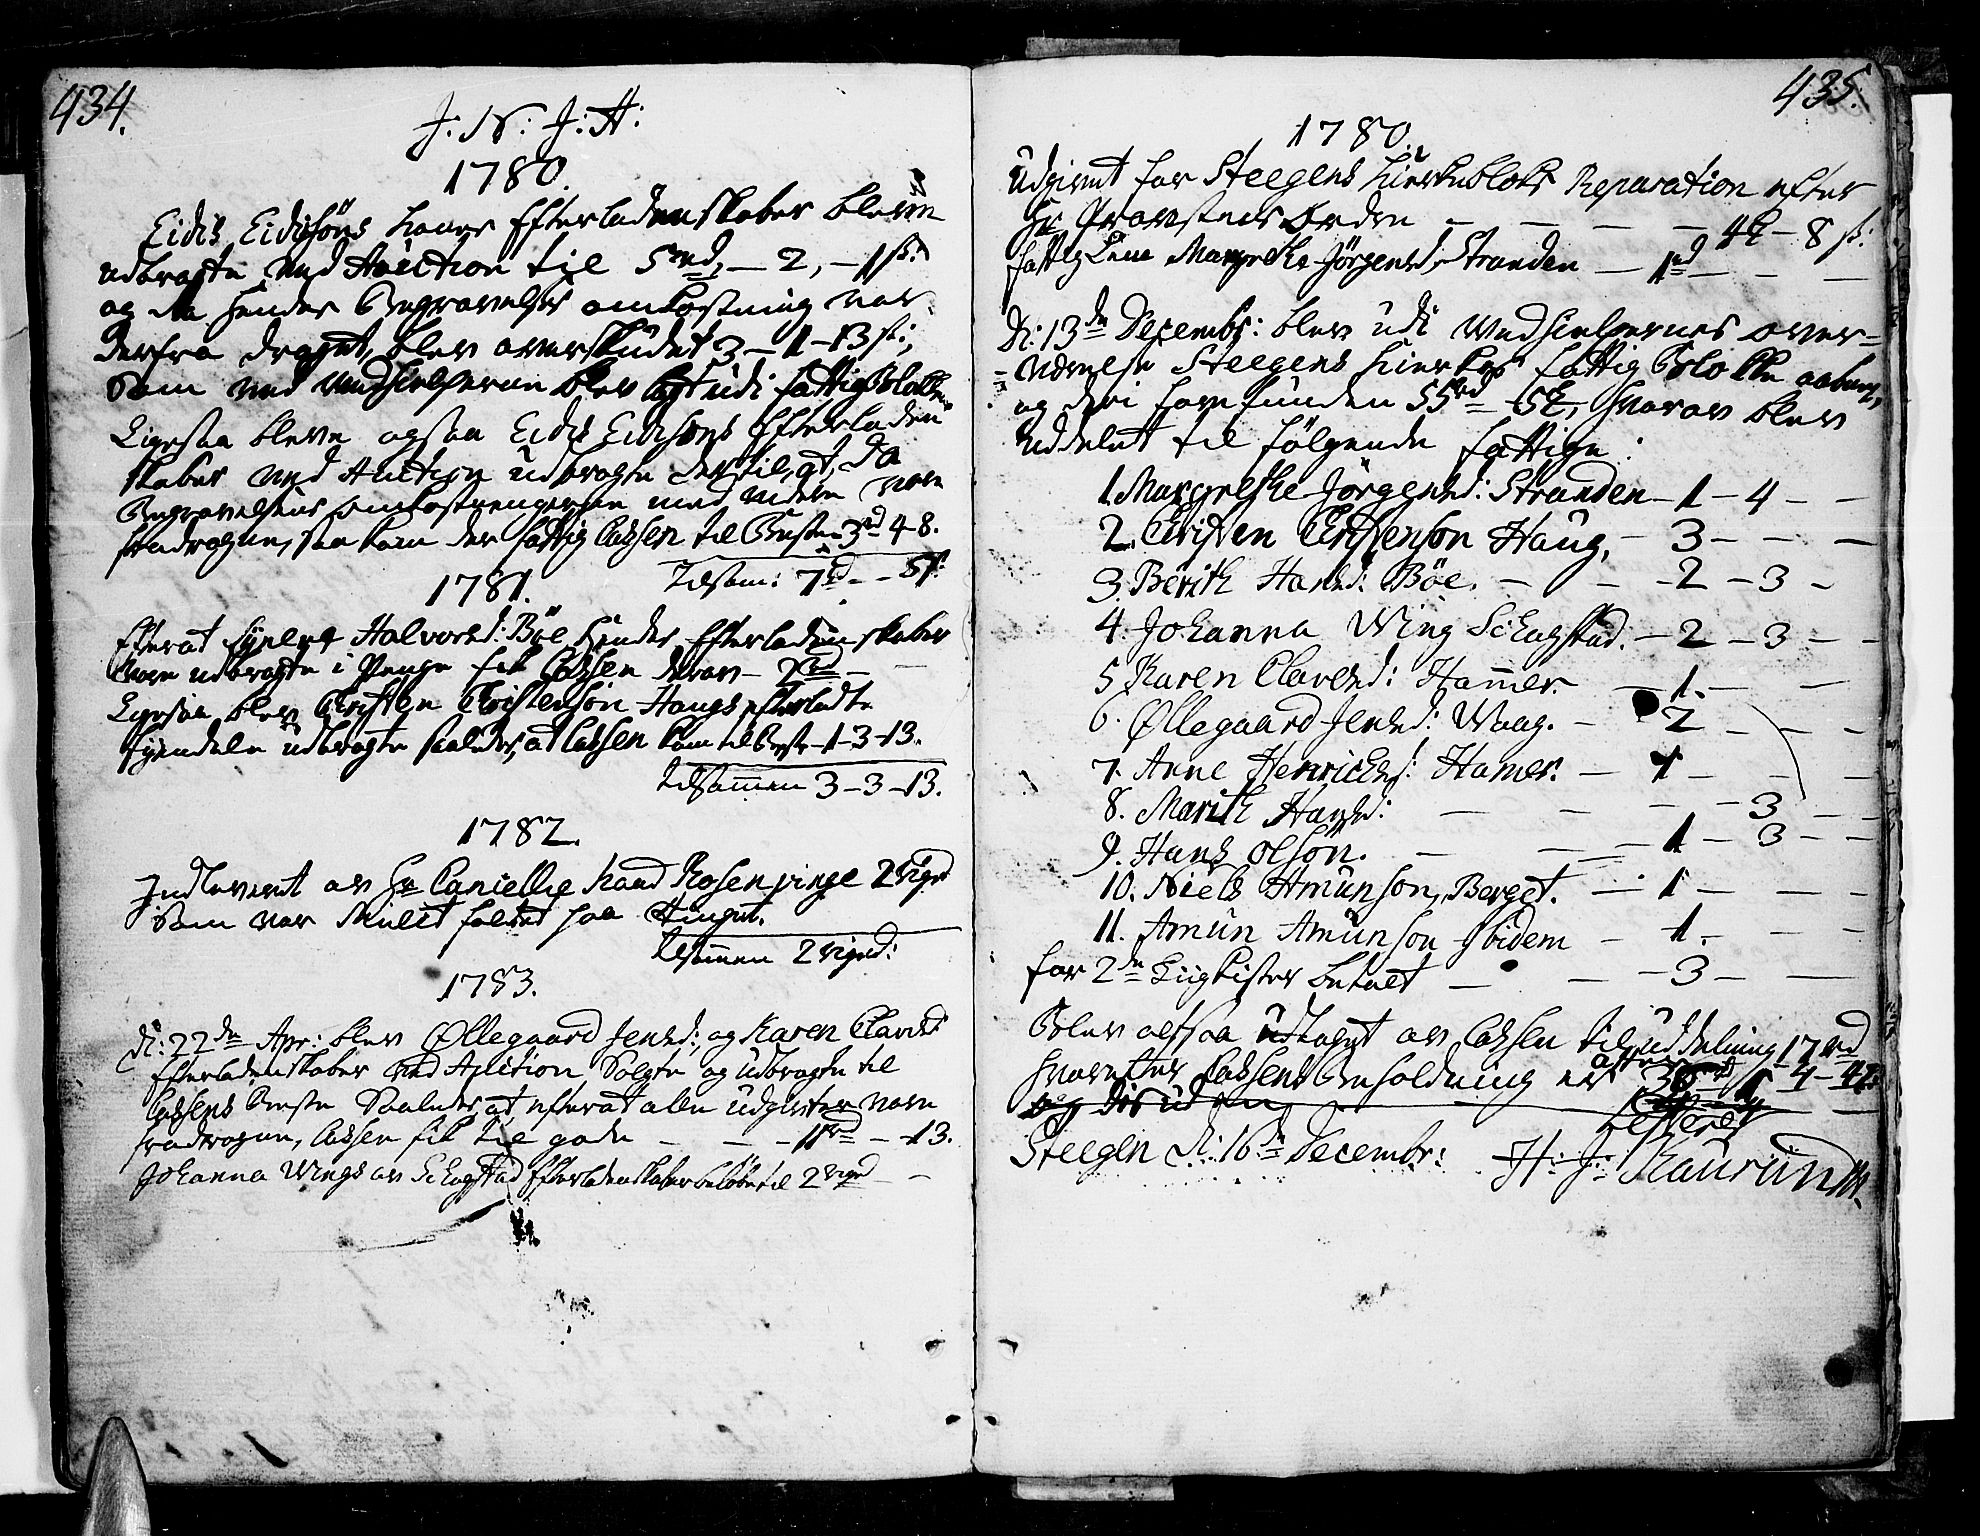 434.
J: N: J: A:
1780.
Eidis Eidisöns Koners Efterladenskaber bleve
udbragte ved Auction til 5 rd, – 2, – 1 s:
og da hendes Begravelses omkostning var
derfra draget, blev overskudet 3 – 1 – 13 s:,
Som ved Medhielperne blev lagt udi fattig Blokken
Ligesaa bleve ogsaa Eidis Eidisöns Efterladen
skaber ved Auction udbragte dertil, at, da
Begravelsens omkostninger med videre vare
fradragne, saa kom der fattig Cassen til Beste 3 rd 4 8.
Tilsam: 7 rd – – 5 s:
1781.
Efterat Halvorsd: Böe hendes Efterladenskaber
Vare udbragte i Penge fik Cassen derav – 2 rd –
Ligesaa blev Christen Christensön Haugs efterladte
Eyendele udbragte saaledes, at Cassen kom til Beste 1 – 3 – 13.
tilsammen 3 – 3 – 13.
1782.
Indleveret av Hr Canicellie Raad Rosenvinge 2 rigsd
Som var Mulct faldet paa Tinget.
tilsammen 2 rigsd:
1783.
d: 22de Apr: blev Øllegaard Jensd:, og Karen Olavesd:
Efterladenskaber ved Auction Solgte og udbragte til
Cassens Beste Saaledes, at, efterat alle udgivter vare
fradragne, Cassen fik til gode – – – 11 rd – 13.
Johanna Wings av Schagstad Efterladenskaber beløbe til 2 rigsd – –
435.
1780.
Udgivet for Steegens Kirkebloks Reparation efter
Hr Provstens Orden – – – – 4 – 8 s:
fattig Margrethe Jörgensd: Stranden – 1 rd – – –
d: 13de Decembr: blev udi Medhielpernes over=
=værelse Steegens Kirkes fattig Blokke aabnet,
og deri forefunden 55 rd – 5, hvorav blev
uddelet til følgende fattige:
1. Margrethe Jörgensd: Stranden – 1 – 4 – –
2. Christen Christensön Haug, – 3 – – –
3. Berith Hansd: Böe. – – – 2 – 3 –
4. Johanna Wing Schagstad. – 2 – 3 – –
5 Karen Olavesd: Hammer. – 1. – – –
6. Øllegaard Jensd: Waag. – 2 – – –
7. Anne Henrichsd: Hamer. – 1 – – –
8. Marith Hansd: – – – – 3 – –
9. Hans Olsön. – – – 1 – 3 – –
10. Niels Amunson, Berget. – 1 – – –
11. Amun Amunson Ibidem – 1. – – –
for 2de Liigkister betalt – – – 3 – –
Blev altsaa udtaget av Cassen til uddeling 17 rd
hvorefter Cassens Beholdning er
Steegen d: 16de Decembr: H: J: Kaurin